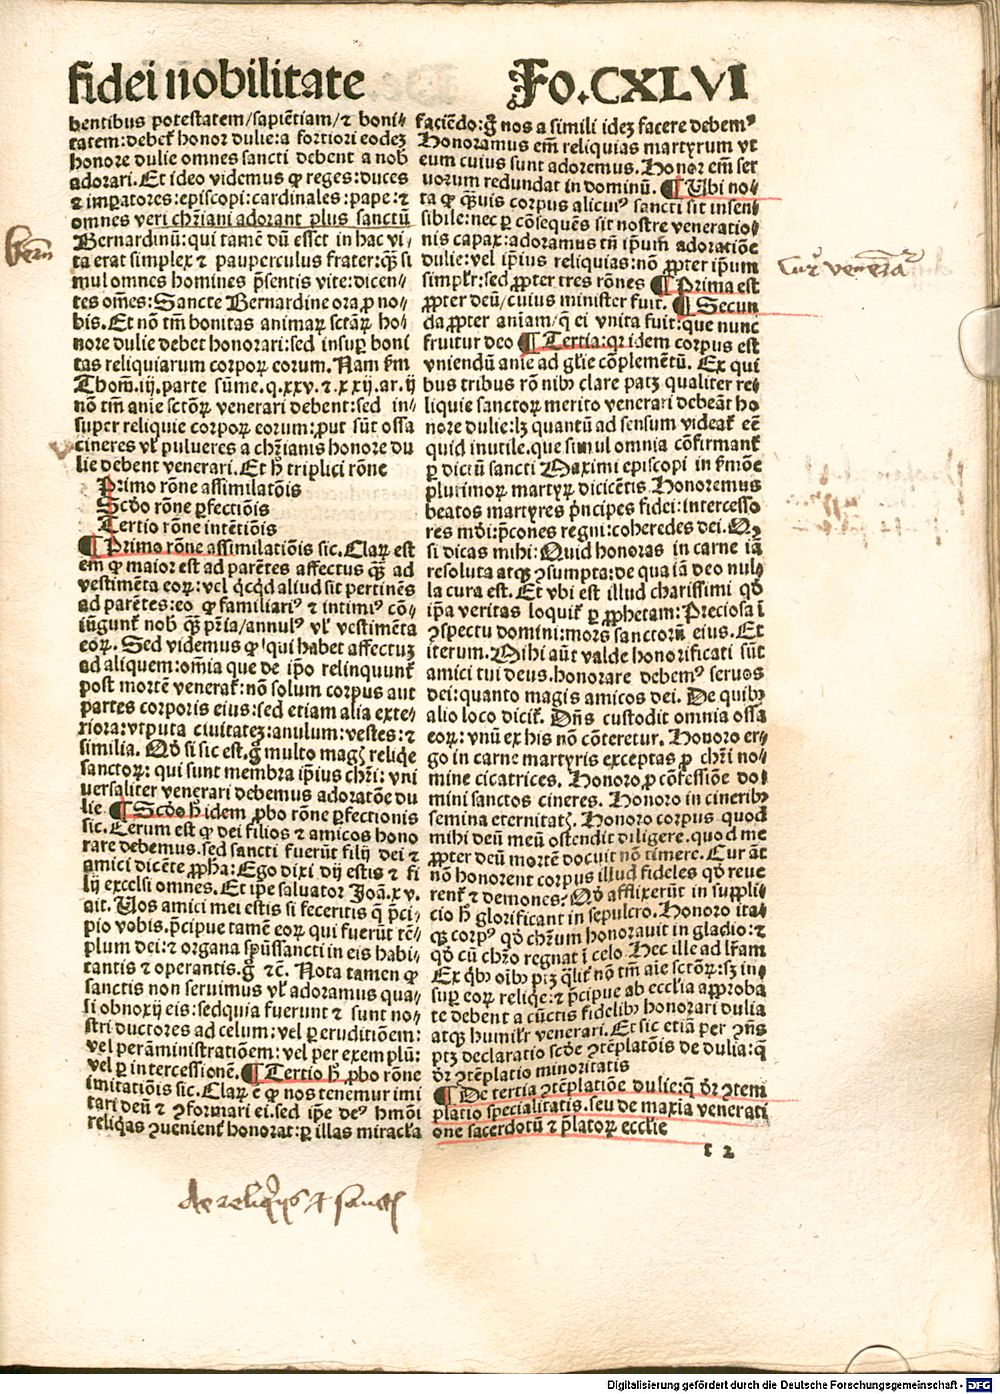 fidei nobilitate Fo.CXLVI
bentibus potestatem/sapiētiam/⁊ boni⸗
tatem:debet honor dulie:a fortiori eodeꝫ
honore dulie omnes sancti debent a nob̄
adorari. Et ideo videmus ꝙ reges:duces
⁊ imꝑatores:episcopi:cardinales:pape:⁊
omnes veri chr̄iani adorant plus sanctū
Bernardinū:qui tamē dū esset in hac vi⸗
ta erat simplex ⁊ pauperculus frater:ꝙ̄ si
mul omnes homines p̄sentis vite:dicen⸗
tes om̄es:Sancte Bernardine ora ꝓ no⸗
bis. Et nō tm̄ bonitas animaꝝ sctāꝝ ho⸗
nore dulie debet honorari:sed insuꝑ boni
tas reliquiarum corpoꝝ eorum. Nam ẜm
Thom̄.iij.parte sūme.q.xxv.⁊.xxij.ar.ij
nō tm̄ anie sctōꝝ venerari debent:sed in⸗
super reliquie corpoꝝ eorum:put sūt ossa
cineres vl̓ pulueres a chr̄ianis honore du
lie debent venerari. Et h̄ triplici rōne
Primo rōne assimilatōis
Scd̓o rōne ꝑfectiōis
Tertio rōne intētiōis
¶ Primo rōne assimilatiōis sic. Claꝝ est
em̄ ꝙ maior est ad parētes affectus ꝙ̄ ad
vestimēta eoꝝ: vel q̇cq̇d aliud sit pertinēs
ad parētes:eo ꝙ familiariꝰ ⁊ intimiꝰ cō⸗
iūgunt̄ nob̄ ꝙ̄ pr̄ia/annulꝰ vl̓ vestimēta
eoꝝ. Sed videmus ꝙ qui habet affectuꝫ
ad aliquem:om̄ia que de ip̄o relinquunt̄
post mortē venerat̄: nō solum corpus aut
partes corporis eius:sed etiam alia exte⸗
riora:vtputa ciuitateꝫ:anulum:vestes:⁊
similia. Qd̓ si sic est.g̊ multo magꝭ reliq̇e
sanctoꝝ: qui sunt membra ip̄ius chr̄i: vni
uersaliter venerari debemus adoratōe du
lie ¶ Scd̓o h̄ idem ꝓbo rōne ꝑfectionis
sic. Certum est ꝙ dei filios ⁊ amicos hono
rare debemus.sed sancti fuerūt filij dei ⁊
amici dicēte ꝓph̄a: Ego dixi dij estis ⁊ fi
lij excelsi omnes. Et ip̄e saluator Joā.xv.
ait. Vos amici mei estis si feceritis q̄ p̄ci⸗
pio vobis.p̄cipue tamē eoꝝ qui fuerūt tē⸗
plum dei:⁊ organa sp̄ussancti in eis habi⸗
tantis ⁊ operantis.g̊ ⁊c̄. Nota tamen ꝙ
sanctis non seruimus vl̓ adoramus qua⸗
si obnoxij eis:sedquia fuerunt ⁊ sunt no⸗
stri ductores ad celum: vel ꝑ eruditiōem:
vel perāministratiōem: vel per exemplū:
vel ꝑ intercessionē. ¶ Tertio h̄ ꝓbo rōne
imitatiōis sic. Claꝝ ē ꝙ nos tenemur imi
tari deū ⁊ ꝯformari ei.sed ip̄e deꝰ hmōi
reliq̇as ꝯuenient̄ honorat:ꝑ illas miracl̓a
faciēdo:g̊ nos a simili ideꝫ facere debemꝰ
Honoramus em̄ reliquias martyrum vt
eum cuius sunt adoremus. Honor em̄ ser
uorum redundat in dominū. ¶ Vbi no⸗
ta ꝙ ꝙ̄uis corpus alicuiꝰ sancti sit insen⸗
sibile:nec ꝑ cōsequēs sit nostre veneratio⸗
nis capax:adoramus tn̄ ip̄um adoratiōe
dulie:vel ip̄ius reliquias:nō ꝓpter ip̄um
simpl̓r:sed ꝓpter tres rōnes ¶ Prima est
ꝓpter deū/cuius minister fuit. ¶ Secun
da ꝓpter aniam/q̄ ei vnita fuit:que nunc
fruitur deo ¶ Tertia:qꝛ idem corpus est
vniendū anie ad gl̓ie cōplemētū. Ex qui
bus tribus rōnibꝫ clare patꝫ qualiter re⸗
liquie sanctoꝝ merito venerari debeāt ho
nore dulie:lꝫ quantū ad sensum videat̄ eē
quid inutile.que simul omnia cōfirmant̄
ꝑ dictū sancti Maximi episcopi in ẜmōe
plurimoꝝ martyꝝ dicicētis. Honoremus
beatos martyres p̄ncipes fidei:intercesso
res mōi:p̄cones regni:coheredes dei. Qꝫ
si dicas mihi: Quid honoras in carne iā
resoluta atqꝫ ꝯsumpta:de qua iā deo nul⸗
la cura est. Et vbi est illud charissimi qd̓
ip̄a veritas loquit̄ ꝑ ꝓphetam: Preciosa ī
ꝯspectu domini:mors sanctorū eius. Et
iterum. Mihi aūt valde honorificati sūt
amici tui deus.honorare debemꝰ seruos
dei:quanto magis amicos dei. De quibꝫ
alio loco dicit̄. Dn̄s custodit omnia ossa
eoꝝ: vnū ex his nō cōteretur. Honoro er⸗
go in carne martyris exceptas ꝓ chr̄i no⸗
mine cicatrices. Honoro ꝓ cōfessiōe do⸗
mini sanctos cineres. Honoro in cineribꝫ
semina eternitatꝭ. Honoro corpus quod
mihi deū meū ostendit diligere.quod me
ꝓpter deū mortē docuit nō timere. Cur āt
nō honorent corpus illud fideles qd̓ reue
rent̄ ⁊ demones? Qd̓ afflixerūt in suppli⸗
cio h̄ glorificant in sepulcro. Honoro ita⸗
qꝫ corpꝰ qd̓ chr̄um honorauit in gladio:⁊
qd̓ cū chr̄o regnat ī celo Hec ille ad lr̄am
Ex q̇bꝫ oībꝫ ptꝫ q̄lit̄ nō tm̄ aīe sctōꝝ:sꝫ in⸗
suꝑ eoꝝ reliq̇e:⁊ p̄cipue ab ecclīa approba
te debent a cūctis fidelibꝫ honorari dulia
atqꝫ humil̓r venerari. Et sic etiā per ꝯn̄s
ptꝫ declaratio scd̓e ꝯtēplatōis de dulia:q̄
dr̄ ꝯtēplatio minoritatis
¶ De tertia ꝯtēplatiōe dulie:q̄ dr̄ ꝯtem
platio specialitatis.seu de maxīa venerati
one sacerdotū ⁊ p̄latoꝝ ecclie
t 2
de reliquijs et sanct